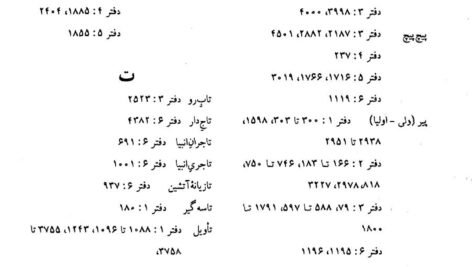 دفتر ۳ : ۳۹۹۸، ۴۰۰۰
پیچ‌پیچ دفتر ۳ : ۲۱۸۷، ۲۸۸۲، ۴۵۰۱
دفتر ۴ : ۲۳۷
دفتر ۵ : ۱۷۱۶، ۱۷۶۶، ۳۰۱۹
دفتر ۶ : ۱۱۱۹
پیر (ولی - اولیا) دفتر ۱ : ۳۰۰ تا ۳۰۳، ۱۵۹۸،
۲۹۳۸ تا ۲۹۵۱
دفتر ۲ : ۱۶۶ تا ۱۸۳، ۷۴۶ تا ۷۵۰،
۸۱۸، ۲۹۷۸، ۳۲۲۷
دفتر ۳ : ۷۹، ۵۸۸ تا ۵۹۷، ۱۷۹۱ تا
۱۸۰۰
دفتر ۶ : ۱۱۹۵، ۱۱۹۶
دفتر ۴ : ۱۸۸۵، ۲۴۰۴
دفتر ۵ : ۱۸۵۵
ت
تاب‌رو دفتر ۳ : ۲۵۲۳
تاج‌دار دفتر ۶ : ۴۳۸۲
تاجران‌انبیا دفتر ۶ : ۶۹۱
تاجری‌انبیا دفتر ۶ : ۱۰۰۱
تازیانهٔ آتشین دفتر ۶ : ۹۳۷
تاسه‌گیر دفتر ۱ : ۱۸۰
تأویل دفتر ۱ : ۱۰۸۸ تا ۱۰۹۶، ۱۲۴۳، ۳۷۵۵ تا
۳۷۵۸،